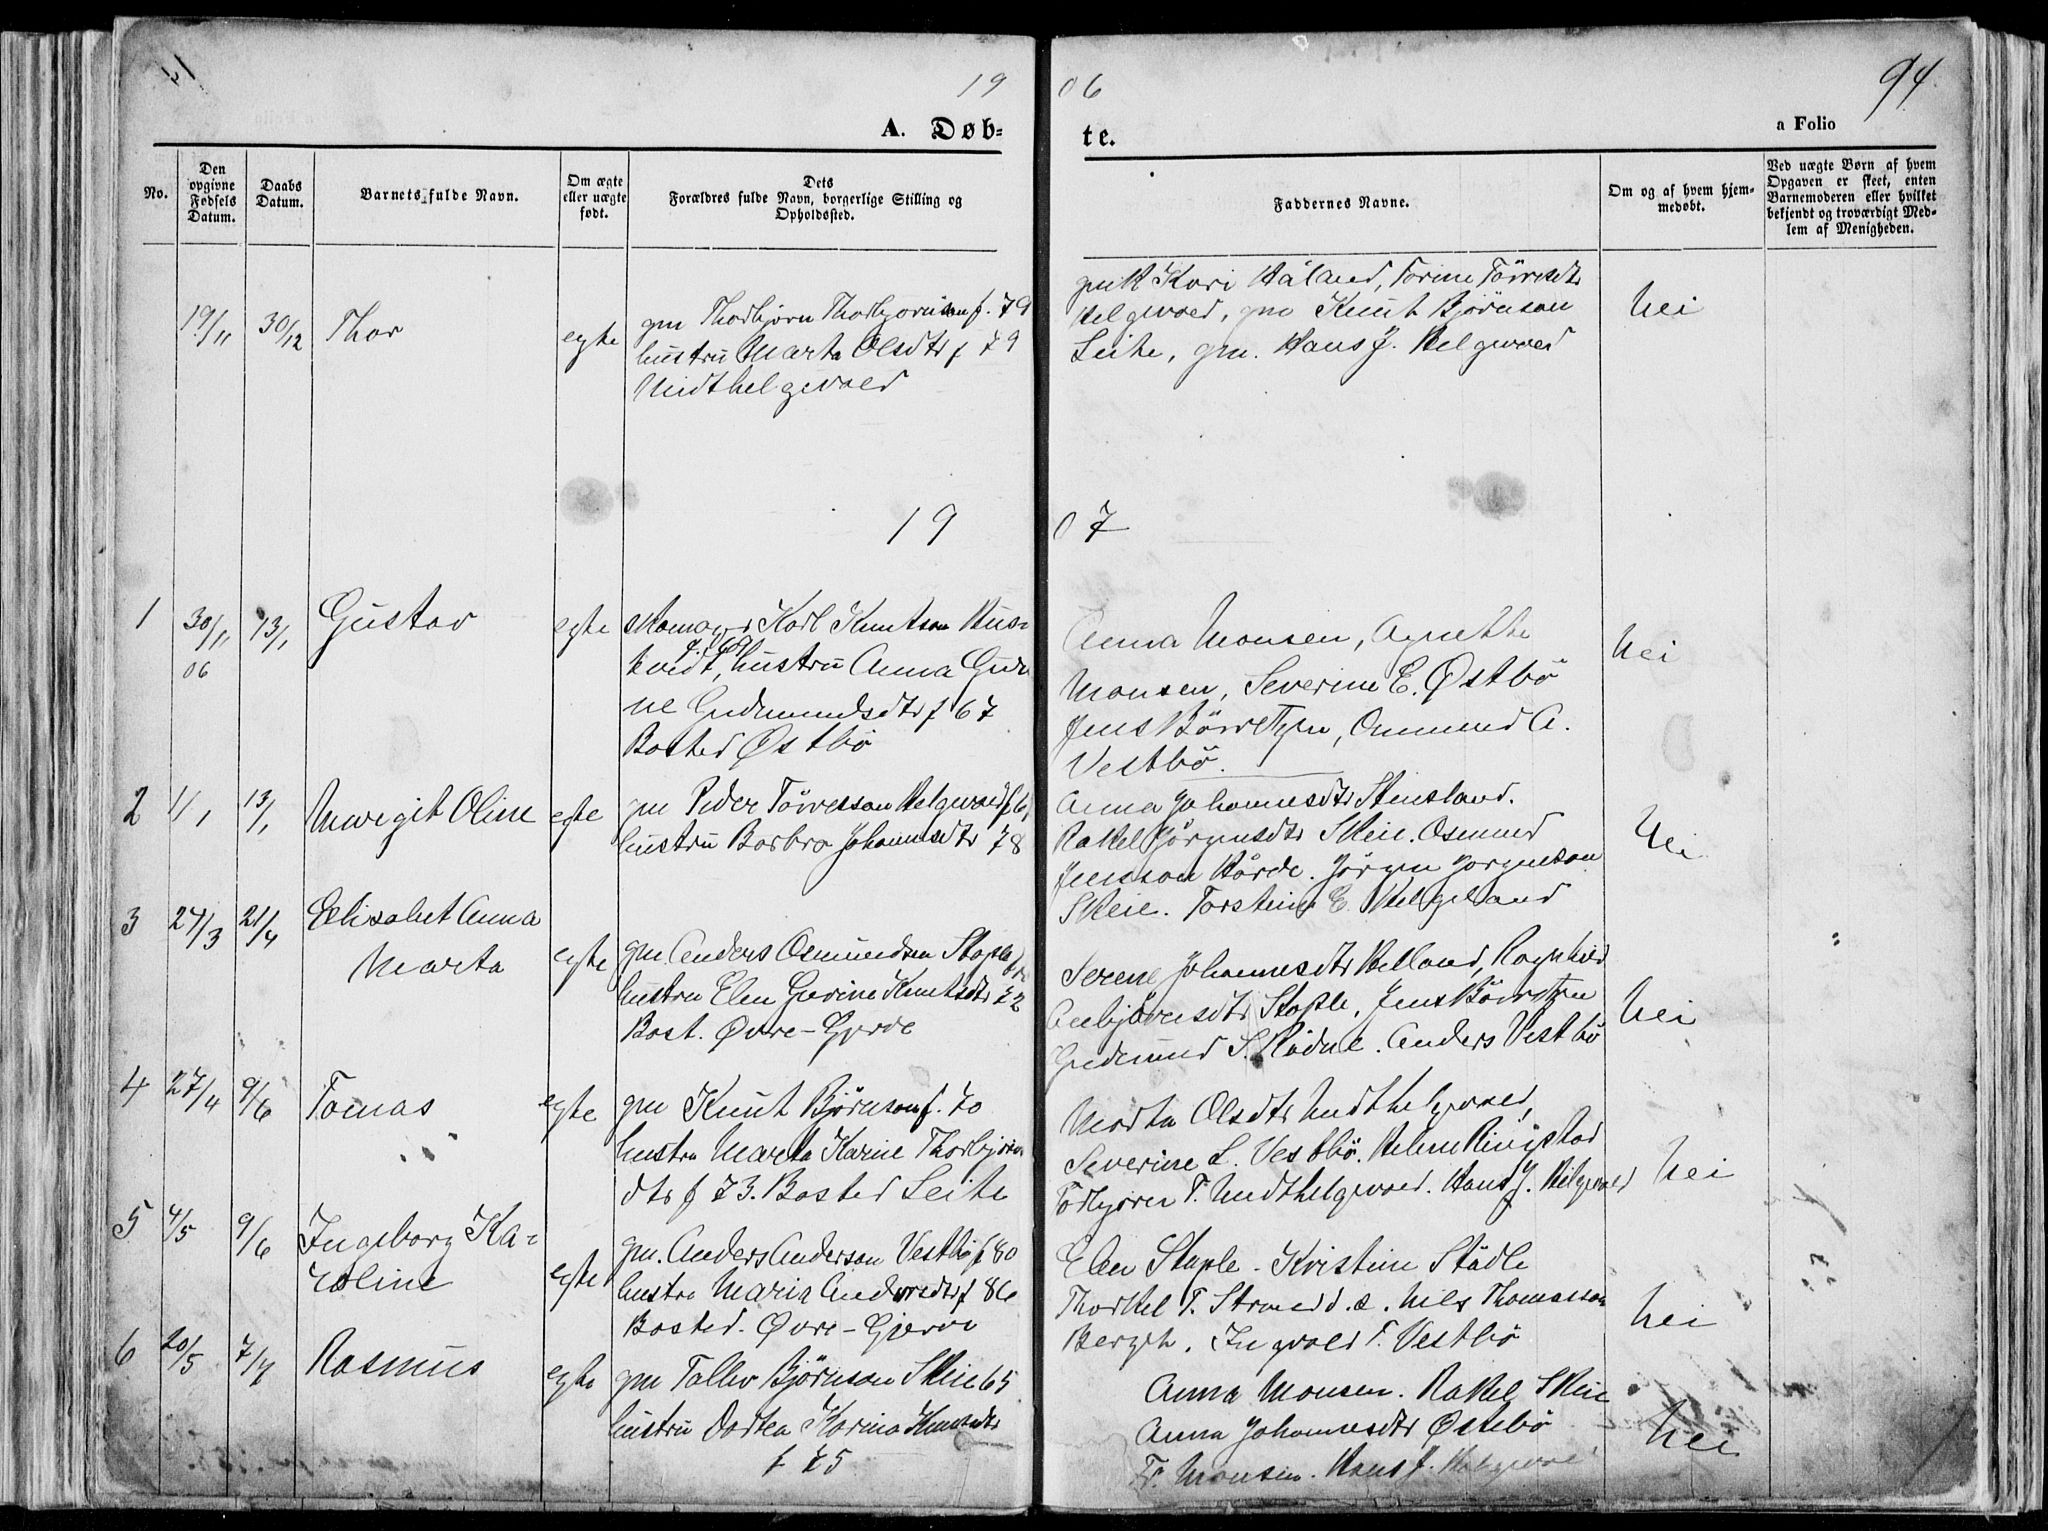 19 06
94
A. Døb- te.
a Folio
No.
Den opgivne Fødsels Datum.
Daabs Datum.
Barnets fulde Navn.
Om ægte eller uægte født.
Dets Forældres fulde Navn, borgerlige Stilling og Opholdssted.
Faddernes Navne.
Om og af hvem hjemmedøbt.
Ved uægte Børn af hvem Opgaven er skeet, enten Barnemoderen eller hvilket bekjendt og troværdigt Medlem af Menigheden.
19/11 30/12 Thor egte
gm Thorbjørn Thorbjørnson f. 79
hustru Marta Olsdtr f 79
Midthelgevold
Kari Håland, Torine Törresdtr
Helgevold, gm Knut Björnson
Leite, gm. Hans J. Helgevold
Nei
19 07
1 30/11 06 13/1 Gustav egte
Skomager Karl Knutson Hus-
kvidt, hustru Anna Gur
ine Gudmundsdtr f 67
Bosted Østbö
Anna Monsen, Agnethe
Monsen, Severine E. Østbö
Jens Böwetzen, Ommund A.
Vestbö.
Nei
2 1/1 13/1 Margit Oline egte
gm Peder Törresson Helgevold f 6
hustru Barbro Johannesdtr 78
Anna Johannesdtr Stensland.
Rakel Jörgensdtr Skeie. Osmund
Jensson Hårde. Jörgen Jorgenson
Skeie. Torstein E. Helgeland
Nei
3 24/3 21/4 Elisabet Anna
Marta egte
gm. Anders Osmundsen Staple
hustru Elen Gurine Knutsdtr 72
Bost. Øvre-Gjerde
Serene Johannesdtr Helland, Ragnhild
Anbjörnsdtr Staple, Jens Böwetzen
Gudmund S. Rådne. Anders Vestbö
Nei
4 27/4 9/6 Tomas egte
gm Knut Björnson f. 70
hustru Marta Karine Thorbjörns
dtr f 73. Bosted Leite
Marta Olsdtr Midthelgevold,
Severine L. Vestbö. Helene Ringstad
Torbjörn T. Midthelgevold. Hans J. Helgevold
Nei
5 4/5 9/6 Ingeborg Ka-
roline egte
gm. Anders Anderson Vestbö f 80
hustru Maria Andersdtr f 86
Bosted. Øvre-Gjerde
Elen Staple - Kristine Städle
Thorkel T. Strand d. e. Nils Thomasson
Berge, Ingvald T. Vestbö
Nei
6 20/5 7/7 Rasmus egte
gm Tollev Björnson Skeie 65
hustru Dortea Karina Knutsdtr
f 75
Anna Monsen. Rakel Skeie
Anna Johannesdtr Østebö
Fr. Monsen. Hans J. Helgevold
Nei